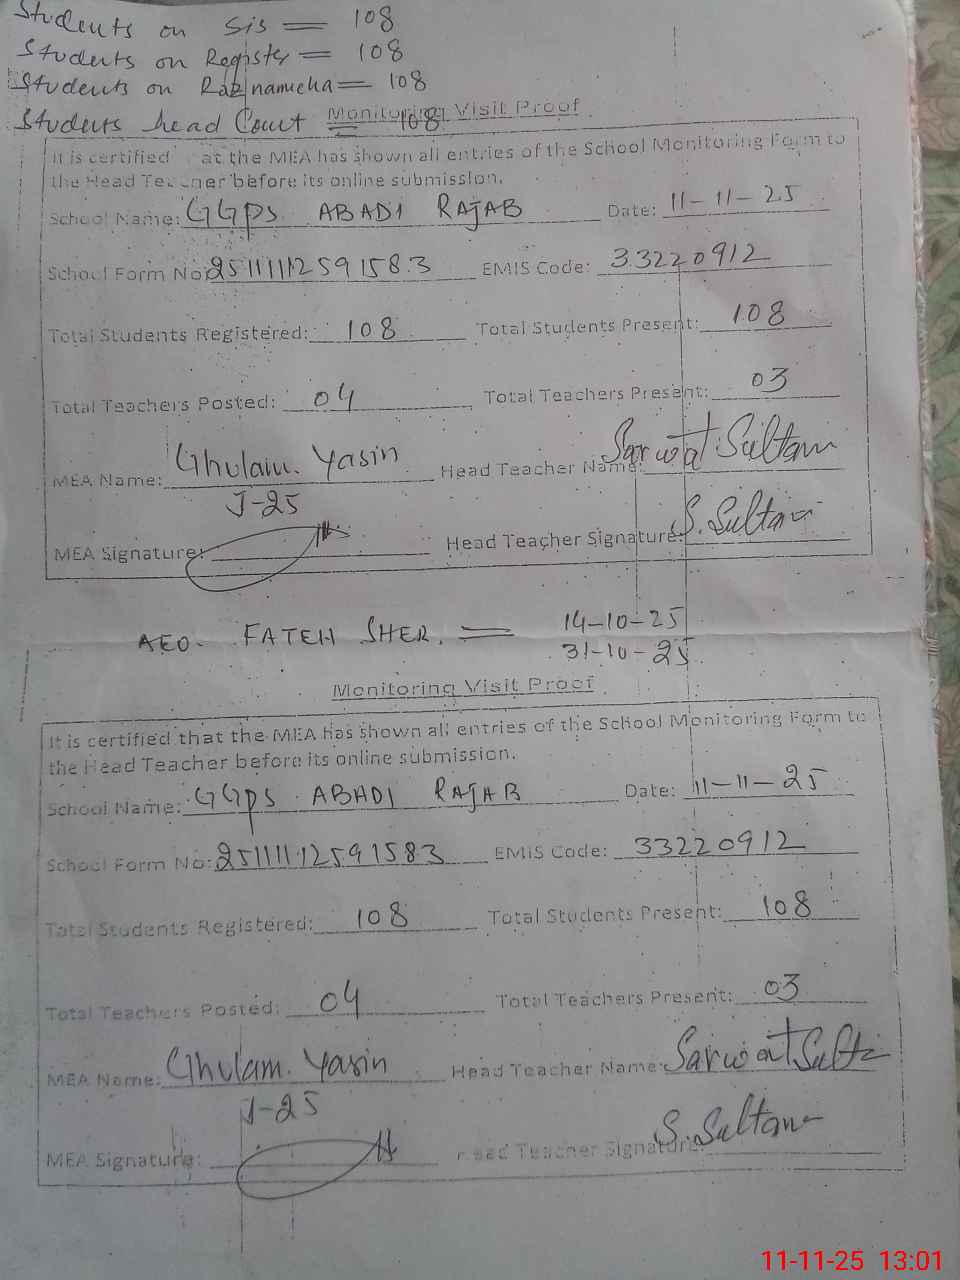 Students on Sis = 108
Students on Register = 108
Students on Roznamcha = 108
Students head Count = 108
Monitoring Visit Proof
It is certified at the MEA has shown all entries of the School Monitoring Form to
the Head Teacher before its online submission.
School Name: GGPS ABADI RAJAB Date: 11-11-25
School Form No: 2511111259158.3 EMIS Code: 33220912
Total Students Registered: 108 Total Students Present: 108
Total Teachers Posted: 04 Total Teachers Present: 03
MEA Name: Ghulam. Yasin Head Teacher Name: Sarwat Sultan
J-25
MEA Signature: Head Teacher Signature: S. Sultan
AEO. FATEH SHER. = 14-10-25
31-10-25
Monitoring Visit Proof
It is certified that the MEA has shown all entries of the School Monitoring Form to
the Head Teacher before its online submission.
School Name: GGPS ABADI RAJAB Date: 11-11-25
School Form No: 25111112591583 EMIS Code: 33220912
Total Students Registered: 108 Total Students Present: 108
Total Teachers Posted: 04 Total Teachers Present: 03
MEA Name: Ghulam. Yasin Head Teacher Name: Sarwat Sulta
J-25
MEA Signature: Head Teacher Signature: S. Sultan
11-11-25 13:01